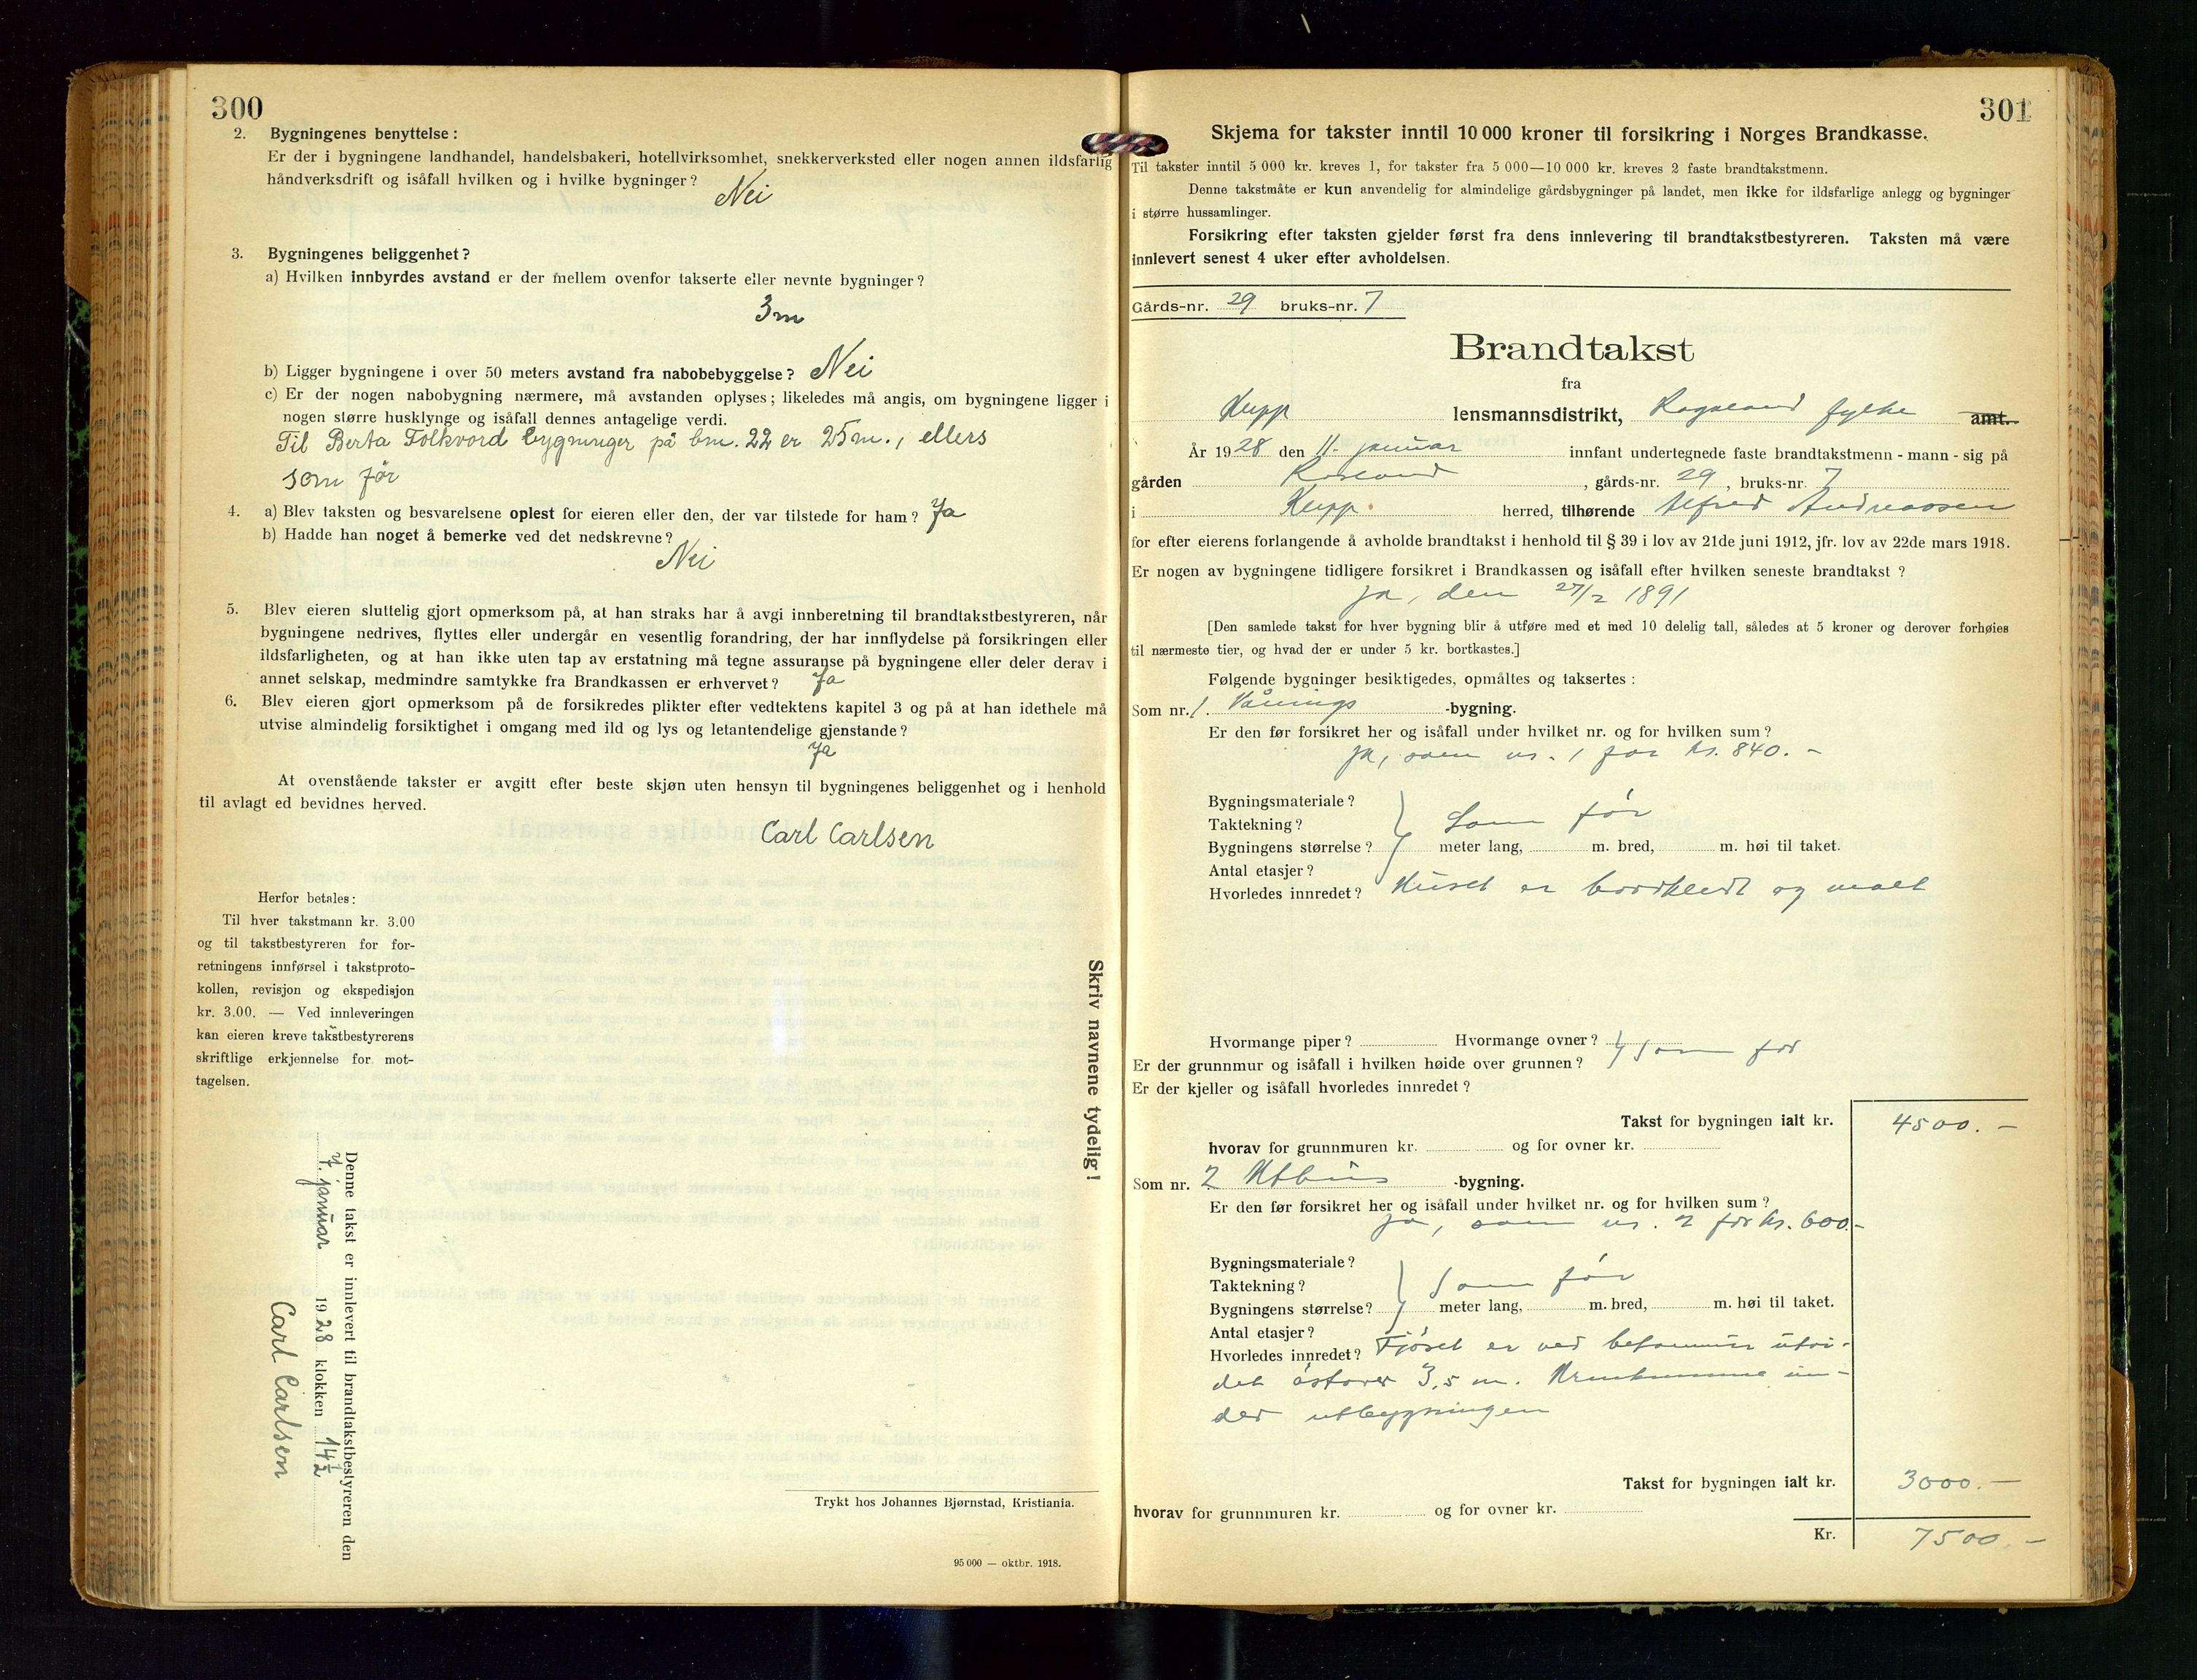 300
2. Bygningenes benyttelse:
Er der i bygningene landhandel, handelsbakeri, hotellvirksomhet, snekkerverksted eller nogen annen ildsfarlig
håndverksdrift og isåfall hvilken og i hvilke bygninger?
Nei
3. Bygningenes beliggenhet?
a) Hvilken innbyrdes avstand er der mellem ovenfor takserte eller nevnte bygninger?
3m
b) Ligger bygningene i over 50 meters avstand fra nabobebyggelse? Nei
c) Er der nogen nabobygning nærmere, må avstanden oplyses; likeledes må angis, om bygningene ligger i
nogen større husklynge og isåfall dennes antagelige verdi.
Til Berta Folkvord bygninger på bnr. 22 er 25m., ellers
som før
4. a) Blev taksten og besvarelsene oplest for eieren eller den, der var tilstede for ham? Ja
b) Hadde han noget å bemerke ved det nedskrevne?
Nei
5. Blev eieren sluttelig gjort opmerksom på, at han straks har å avgi innberetning til brandtakstbestyreren, når
bygningene nedrives, flyttes eller undergår en vesentlig forandring, der har innflydelse på forsikringen eller
ildsfarligheten, og at han ikke uten tap av erstatning må tegne assuranse på bygningene eller deler derav i
annet selskap, medmindre samtykke fra Brandkassen er erhvervet? Ja
6. Blev eieren gjort opmerksom på de forsikredes plikter efter vedtektens kapitel 3 og på at han idethele må
utvise almindelig forsiktighet i omgang med ild og lys og letantendelige gjenstande?
Ja
At ovenstående takster er avgitt efter beste skjøn uten hensyn til bygningenes beliggenhet og i henhold
til avlagt ed bevidnes herved.
Carl Carlsen
Herfor betales:
Til hver takstmann kr. 3.00
og til takstbestyreren for for-
retningens innførsel i takstproto-
kollen, revisjon og ekspedisjon
kr. 3.00. — Ved innleveringen
kan eieren kreve takstbestyrerens
skriftlige erkjennelse for mot-
tagelsen.
Skriv navnene tydelig!
Denne takst er innlevert til brandtakstbestyreren den
7. januar 1928 klokken 14½
Carl Carlsen
Trykt hos Johannes Bjørnstad, Kristiania.
95 000 — oktbr. 1918.
301
Skjema for takster inntil 10 000 kroner til forsikring i Norges Brandkasse.
Til takster inntil 5 000 kr. kreves 1, for takster fra 5 000—10 000 kr. kreves 2 faste brandtakstmenn.
Denne takstmåte er kun anvendelig for almindelige gårdsbygninger på landet, men ikke for ildsfarlige anlegg og bygninger
i større hussamlinger.
Forsikring efter taksten gjelder først fra dens innlevering til brandtakstbestyreren. Taksten må være
innlevert senest 4 uker efter avholdelsen.
Gårds-nr. 29 bruks-nr. 7
Brandtakst
fra
Klepp lensmannsdistrikt, Rogaland fylke amt.
År 1928 den 11. januar innfant undertegnede faste brandtakstmenn - mann - sig på
gården Rosland, gårds-nr. 29, bruks-nr. 7
i Klepp herred, tilhørende Alfred Andreassen
for efter eierens forlangende å avholde brandtakst i henhold til § 39 i lov av 21de juni 1912, jfr. lov av 22de mars 1918.
Er nogen av bygningene tidligere forsikret i Brandkassen og isåfall efter hvilken seneste brandtakst?
Ja, den 27/2 1891
[Den samlede takst for hver bygning blir å utføre med et med 10 delelig tall, således at 5 kroner og derover forhøies
til nærmeste tier, og hvad der er under 5 kr. bortkastes.]
Følgende bygninger besiktigedes, opmåltes og taksertes:
Som nr. 1. Vånings -bygning.
Er den før forsikret her og isåfall under hvilket nr. og for hvilken sum?
Ja, som nr. 1 for kr. 840.-
Bygningsmateriale?
Taktekning? Som før
Bygningens størrelse? meter lang, m. bred, m. høi til taket.
Antal etasjer?
Hvorledes innredet? Huset er bordkledt og malt
Hvormange piper? Hvormange ovner? Som før
Er der grunnmur og isåfall i hvilken høide over grunnen?
Er der kjeller og isåfall hvorledes innredet?
Takst for bygningen ialt kr. 4500.-
hvorav for grunnmuren kr. og for ovner kr.
Som nr. 2 Uthus -bygning.
Er den før forsikret her og isåfall under hvilket nr. og for hvilken sum?
Ja, som nr. 2 for kr. 600.-
Bygningsmateriale?
Taktekning? Som før
Bygningens størrelse? meter lang, m. bred, m. høi til taket.
Antal etasjer?
Hvorledes innredet? Fjøset er ved betonmur utvi-
det østover 3,5 m. un-
der utbygningen
Takst for bygningen ialt kr. 3000.-
hvorav for grunnmuren kr. og for ovner kr.
Kr. 7500.-